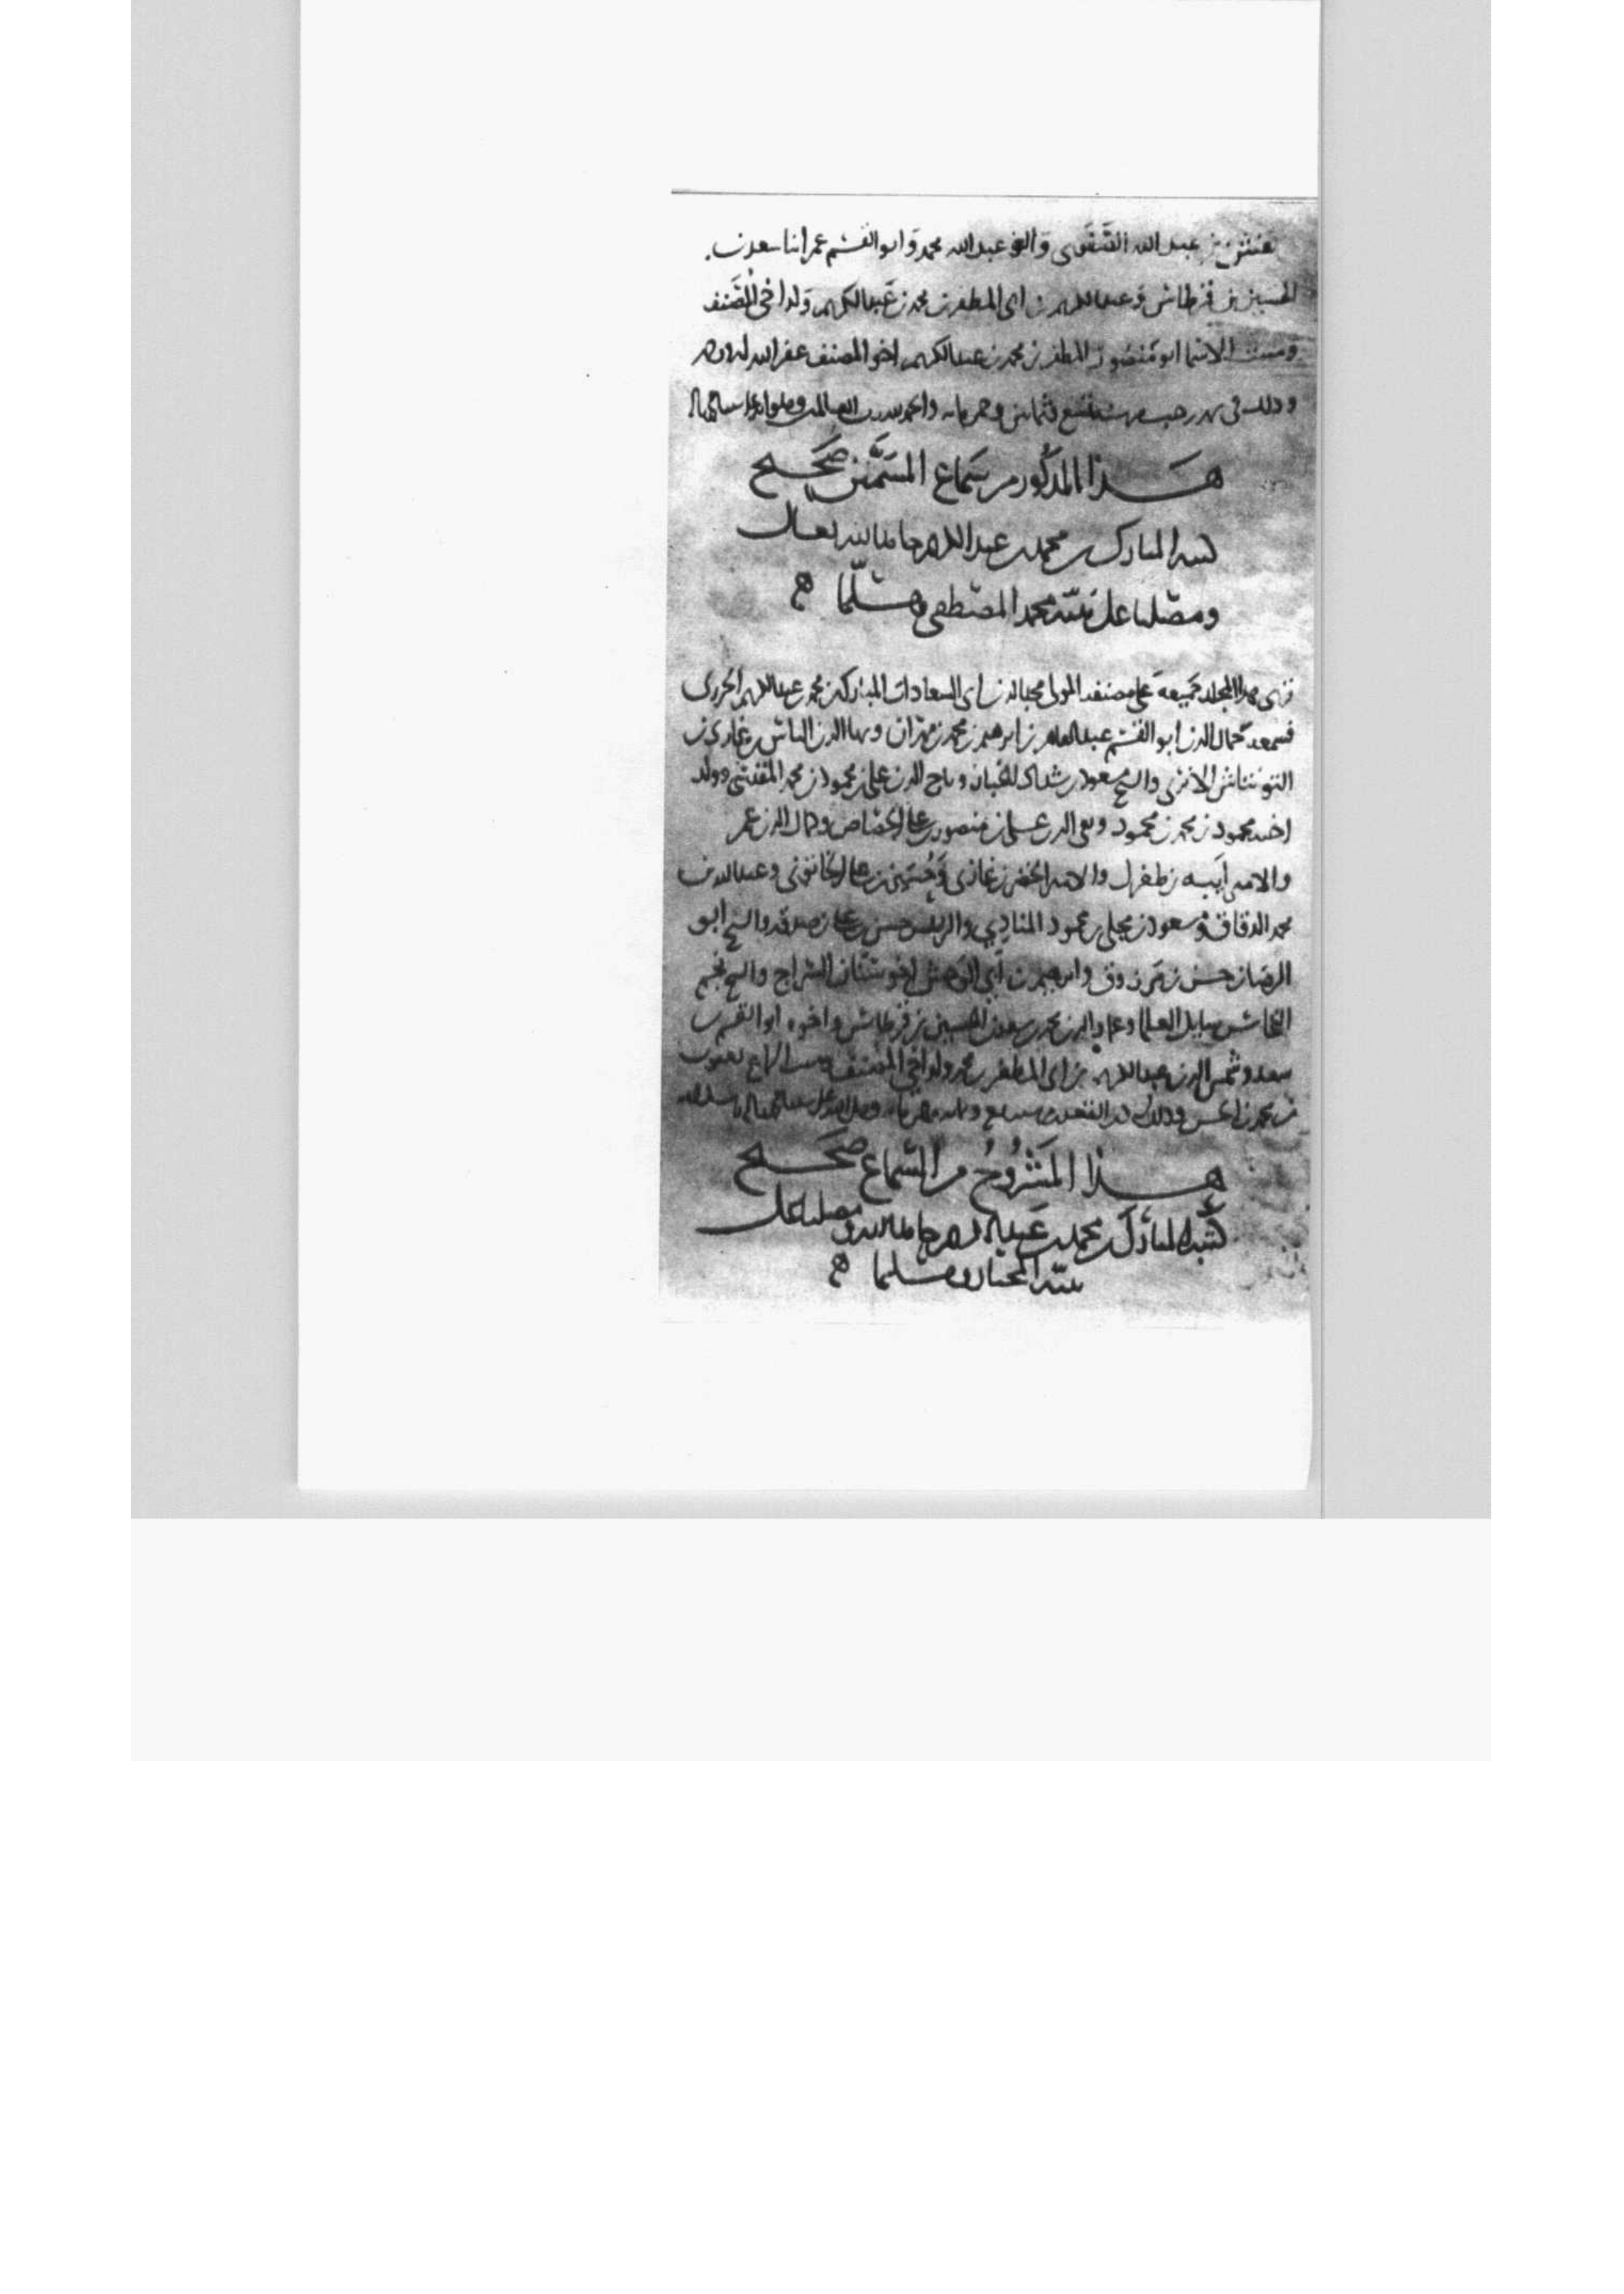 بن عبد الله التقوى وأبو عبد الله محمد وابو القسم عمر ابنا سعد بن
الحسين بن قرطاش وعبد الكريم بن ابى المظفر بن محمد بن عبد الكريم ولد اخى المصنف
ومثبت الاسما ابو منصور المظفر بن محمد بن عبد الكريم اخو المصنف غفر الله له
وذلك فى رجب سنة تسع وثمانين وخمس مايه والحمد لله رب العالمين وصلواته على سيدنا محمد واله
هذا المذكور من سماع المسمين صحيح
كتبه المبارك بن محمد بن عبد الكريم حامدا لله تعالى
ومصليا على نبيه محمد المصطفى ومسلما
قرى هذا المجلد جميعه على مصنفه المولى مجد الدين ابى السعادات المبارك بن محمد بن عبد الكريم الجزرى
فسمعه كمال الدين ابو القسم عبد بن ابرهيم بن محمد بن مهران وبهاء الدين الياس بن غازى بن
التونتاش الاثرى والشيخ مسعود بن شداد وتاج الدين على بن محمود بن محمد وولد
اخيه محمود بن محمد بن محمود وتقى الدين عثمن بن منصور بن على الجصاص وكمال الدين عمر
والامير ايبه بن طغرل والامير الخضر بن غازى وحسين بن على الخاتونى وعبد الله بن
محمد الدقاق ومسعود بن مجلى بن محمود المنادي والرئيس حسن بن على بن صدقه والشيخ ابو
الرضا بن حسن بن مرزوق وابرهيم بن أبي السراج والشيخ نجم
النحاس وعماد الدين محمد بن سعد بن الحسين بن قرطاش واخوه ابو القسم بن
سعد وشمس الدين عبد الكريم بن ابى المظفر بن محمد ولد اخى المصنف ومثبت السماع يعقوب
بن محمد بن وذلك فى ذى القعده سنه تسع وثمانين وخمس مايه وصلى الله على سيدنا محمد واله
هذا المشروح من السماع صحيح
كتبه المبارك بن محمد بن عبد الكريم حامدا لله ومصليا على
نبيه المختار ومسلما